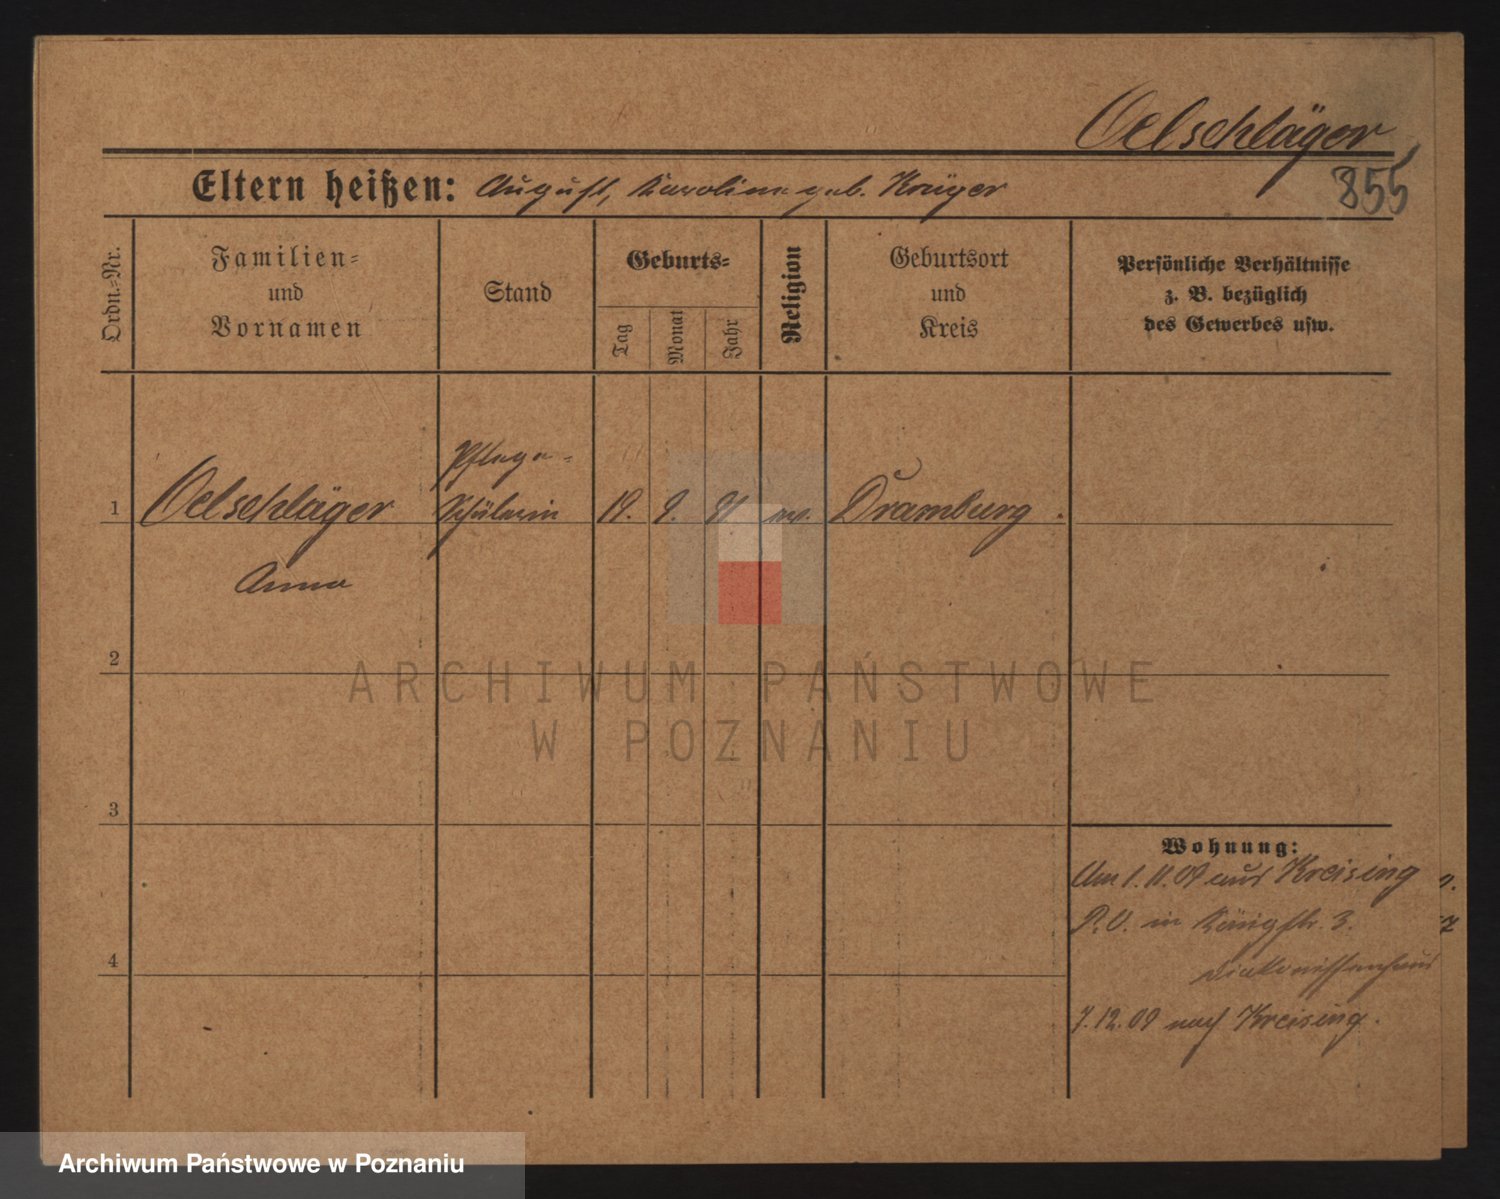 Oelschläger
855
Eltern heißen: August, Karoline geb. Krüger
Ordn.-Nr.
Familien-
und
Vornamen
Stand
Geburts-
Tag
Monat
Jahr
Religion
Geburtsort
und
Kreis
Persönliche Verhältnisse
z. B. bezüglich
des Gewerbes usw.
Pflege-
1 Oelschläger Schülerin 19. 9. ev. Dramburg.
Anna
2
ARCHIWUM PAŃSTWOWE
W POZNANIU
3
Wohnung:
Am 1.11.09 aus Kreising
P.O. in Königstr. 3.
4
Diakonissenhaus
7.12.09 nach Kreising.
Archiwum Państwowe w Poznaniu